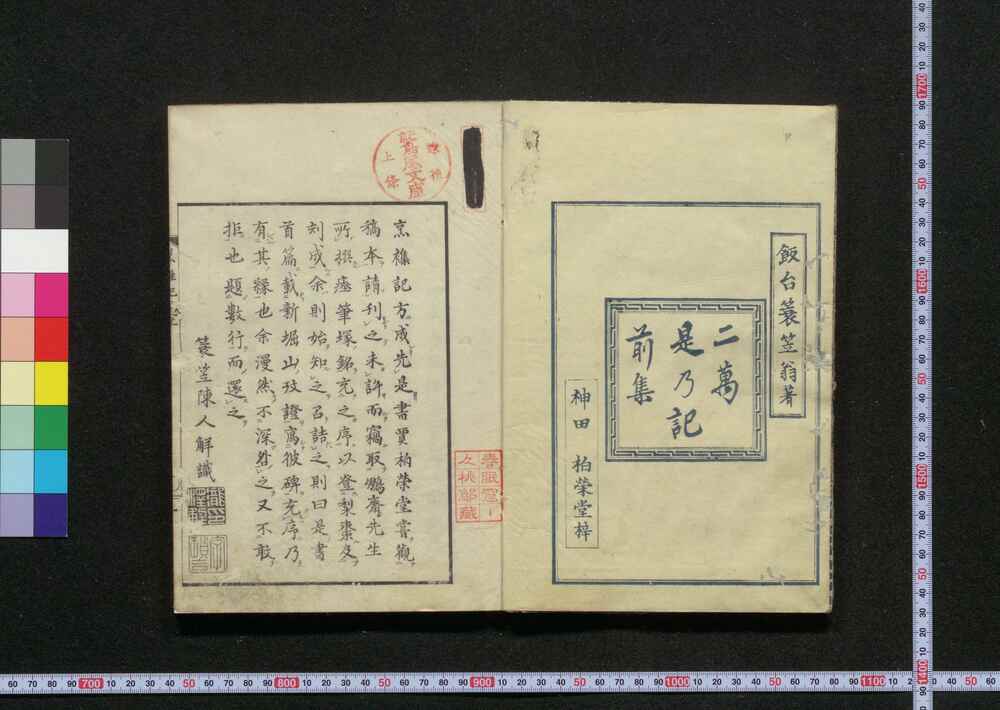 飯台簑笠翁著
二萬
是乃記
前集
神田 柏榮堂梓
京襍記方成先是書賈柏榮堂嘗觀
稿本請刊之未許而竊取鵬齋先生
所撰瘞筆塚銘充之序以登梨棗及
刻成余則始知之召詰之則曰是書
首篇載新堀山攷證寫彼碑充序乃
有其緣也余漫然不深咎之又不敢
拒也題數行而還之
簑笠陳人解識
文庫